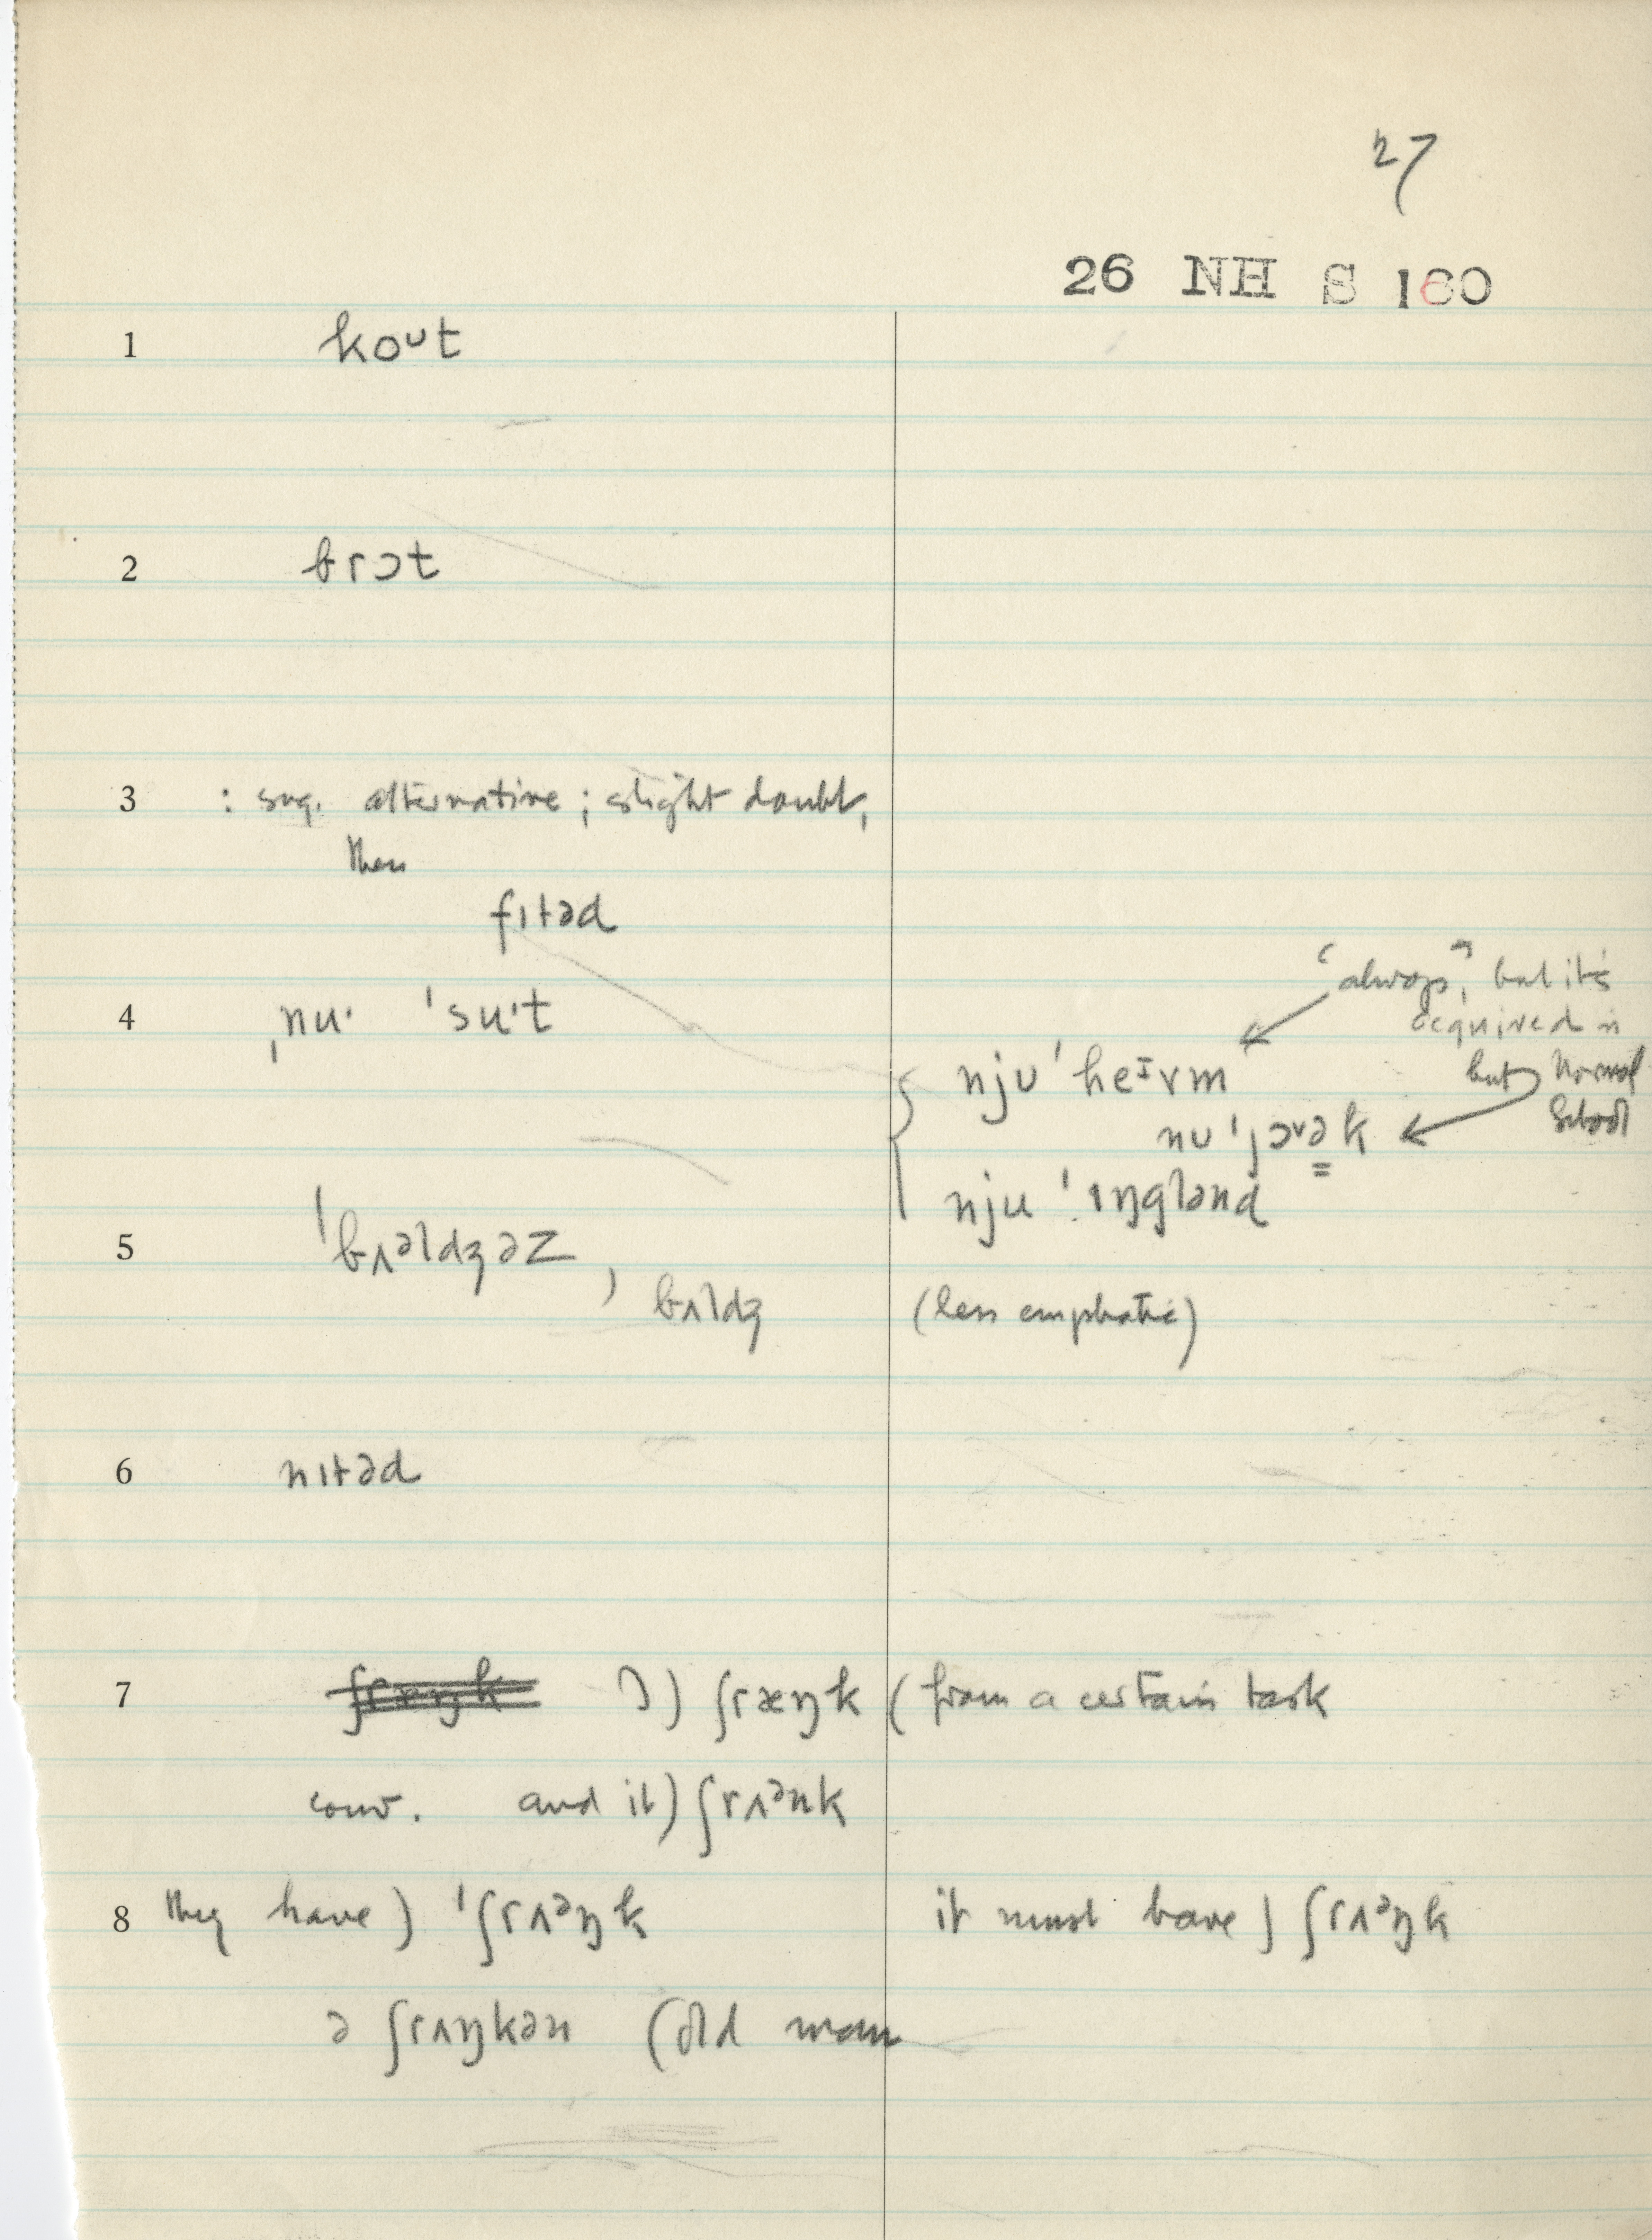 27
26 NH S 160
1 koᴜt
2 brɔt
3 : sug. alternative ; slight doubt,
then
fɪtəd
4 ˌnuˑ ˈsuˑt
"always", but it's
acquired in
Normal
School
njʊˈheɪvm
but
nʊˈjɔᵛək
njuˈɪŋglənd
5 ˈbʌᵊldʒəz, bʌldʒ (less emphatic)
6 nɪtəd
7 ʃræŋk ɔ) ʃræŋk (from a certain task
conv. and it) ʃrʌᵊnk
8 they have) ˈʃrʌᵊŋk it must have) ʃrʌᵊŋk
ə ʃrʌŋkən (old man